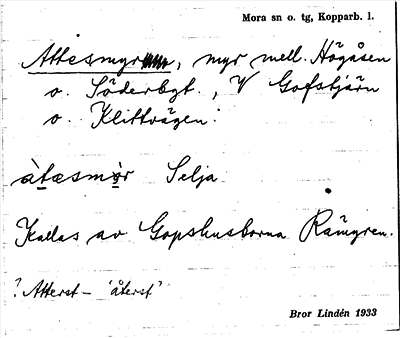 Mora sn o. tg, Kopparb. l.
Attesmyren, myr mell. Högåsen
o. Söderbgt., V Gofstjärn
o. Klittvägen.
àtæsmòr Selja.
Kallas av Gopshusborna Rämyren.
? Atterst- 'återst'
Bror Lindén 1933